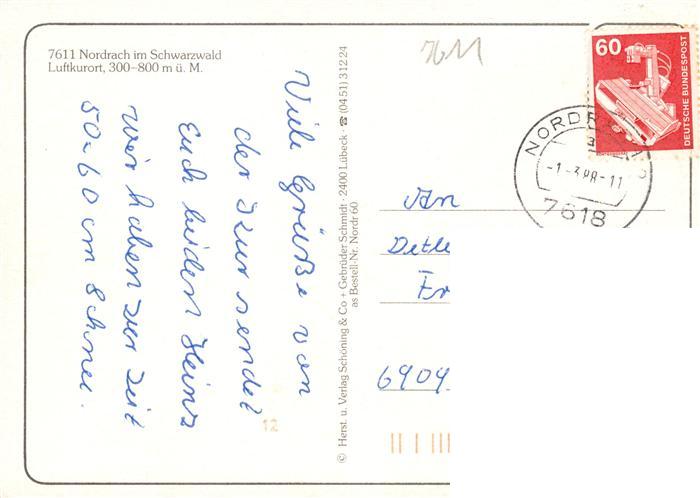 7611 Nordrach im Schwarzwald
Luftkurort, 300–800 m ü. M.
Viele Grüße von
der Kur sendet
Euch beiden Heinz
Wir haben zur Zeit
50-60 cm Schnee.
12
© Herst. u. Verlag Schöning & Co + Gebrüder Schmidt · 2400 Lübeck · ☎ (0451) 31224
as Bestell-Nr. Nordr 60
7611
60
DEUTSCHE BUNDESPOST
-1.-3.88-11
7618
An
6909